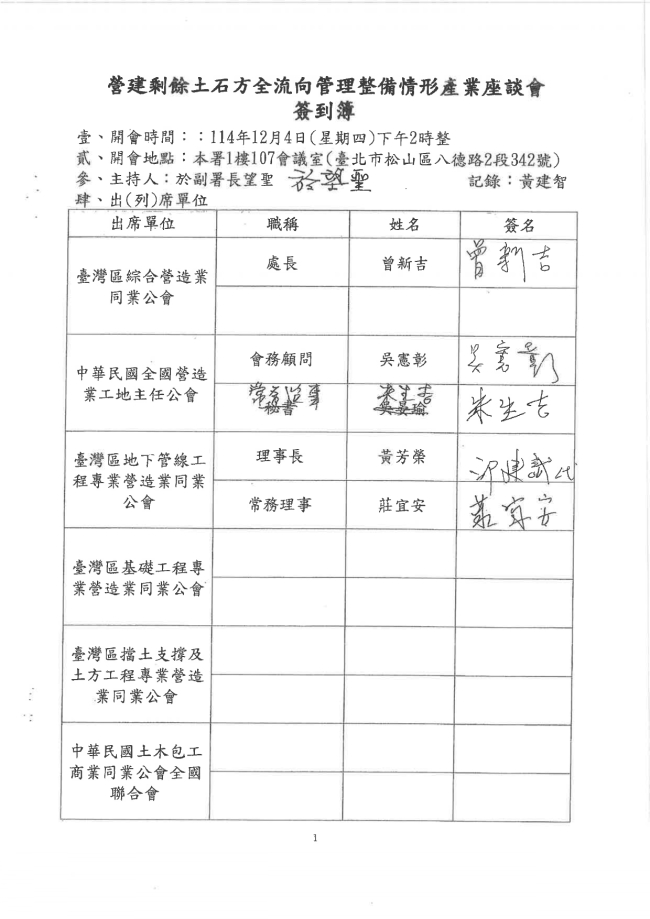 營建剩餘土石方全流向管理整備情形產業座談會
簽到簿
壹、開會時間：：114年12月4日(星期四)下午2時整
貳、開會地點：本署1樓107會議室(臺北市松山區八德路2段342號)
參、主持人：於副署長望聖 於望聖 記錄：黃建智
肆、出(列)席單位
出席單位 職稱 姓名 簽名
臺灣區綜合營造業
同業公會
處長 曾新吉 曾新吉
中華民國全國營造
業工地主任公會
會務顧問 吳憲彰 吳憲彰
常務理事 朱生吉 朱生吉
秘書 吳晏瑜
臺灣區地下管線工
程專業營造業同業
公會
理事長 黃芳榮 代
常務理事 莊宜安 莊宜安
臺灣區基礎工程專
業營造業同業公會
臺灣區擋土支撐及
土方工程專業營造
業同業公會
中華民國土木包工
商業同業公會全國
聯合會
1